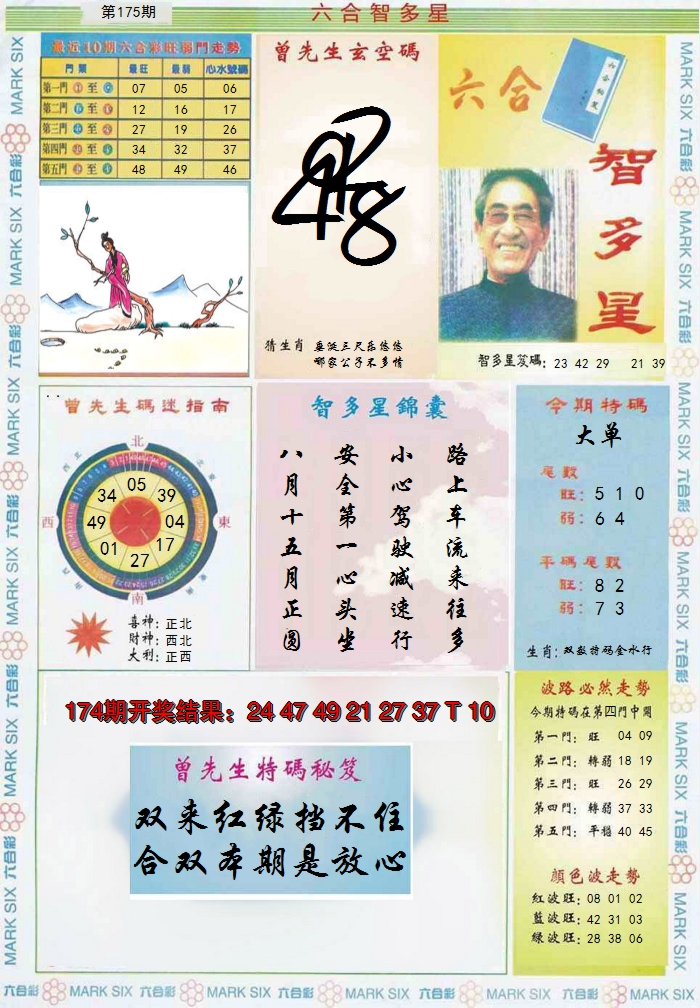 第175期
六合智多星
最近10期六合彩旺弱門走勢
門類 最旺 最弱 心水號碼
第一門 至 07 05 06
第二門 至 12 16 17
第三門 至 27 19 26
第四門 至 34 32 37
第五門 至 48 49 46
曾先生玄空碼
猜生肖 垂涎三尺乐悠悠
哪家公子不多情
六合
智多星
智多星笈碼：23 42 29 21 39
曾先生碼迷指南
北
西
東
南
05
39
04
17
27
01
49
34
喜神：正北
財神：西北
大利：正西
智多星錦囊
路上车流来往多
小心驾驶减速行
安全第一心头坐
八月十五月正圆
今期特碼
大单
尾數
旺：5 1 0
弱：6 4
平碼尾數
旺：8 2
弱：7 3
生肖：双数特码金水行
174期开奖结果：24 47 49 21 27 37 T 10
曾先生特碼秘笈
双来红绿挡不住
合双本期是放心
波路必然走勢
今期特碼在第四門中開
第一門：旺 04 09
第二門：轉弱 18 19
第三門：旺 26 29
第四門：轉弱 37 33
第五門：平穩 40 45
顏色波走勢
紅波旺：08 01 02
藍波旺：42 31 03
綠波旺：28 38 06
MARK SIX 六合彩